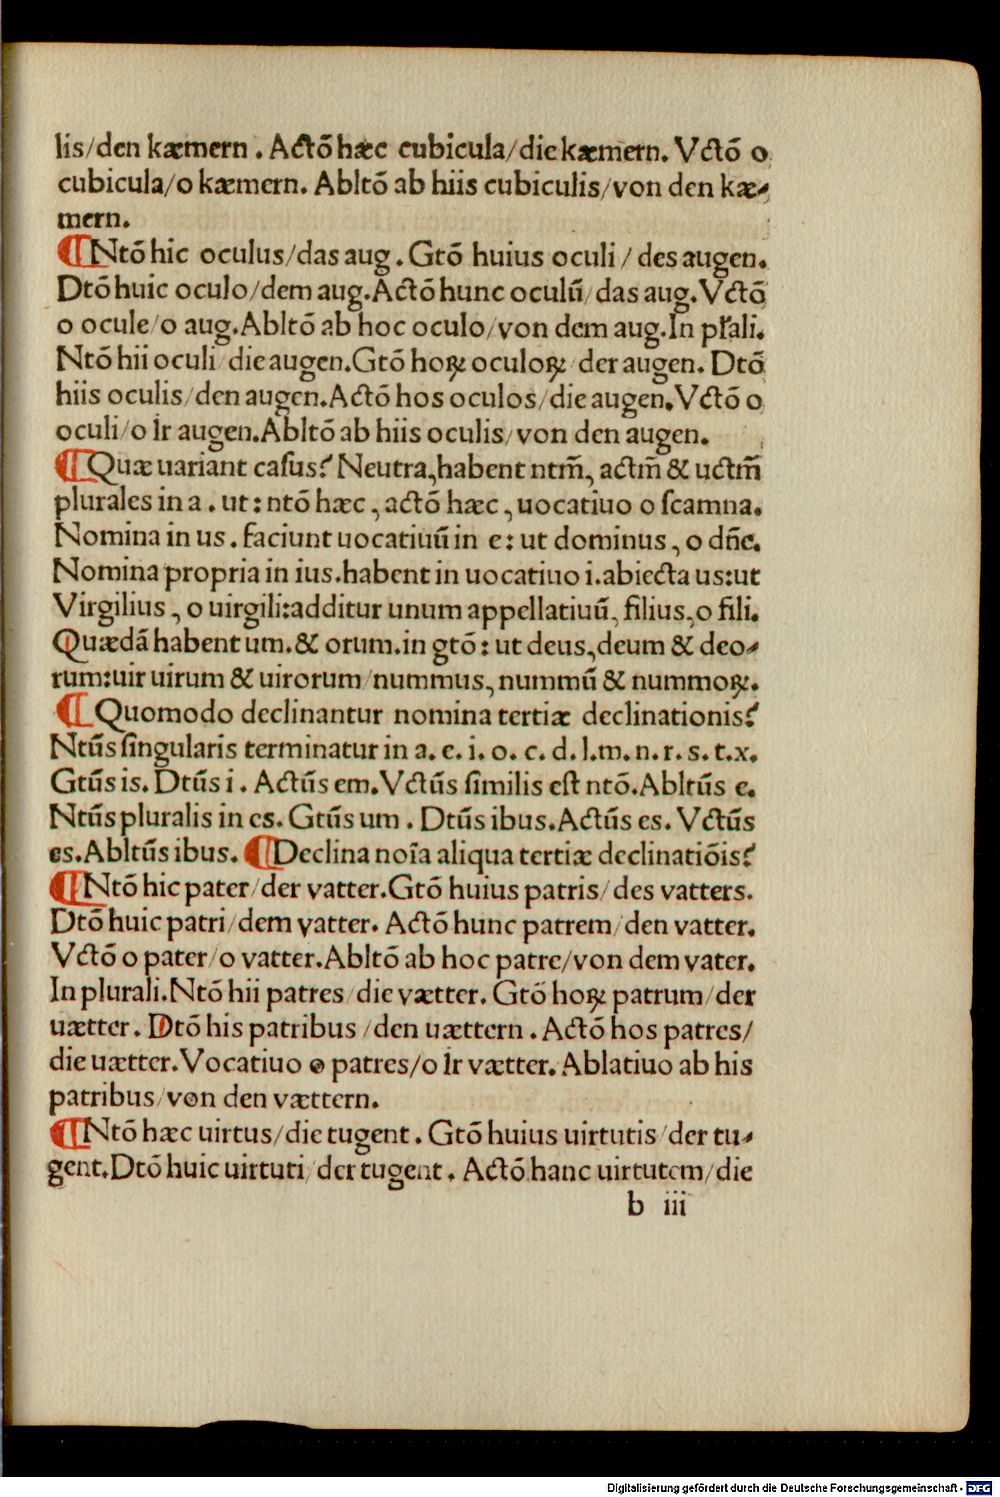 lis/den kæmern . Actō hæc cubicula/die kæmern. Vctō o
cubicula/o kæmern. Abltō ab hiis cubiculis/von den kæ⸗
mern.
¶ Ntō hic oculus/das aug . Gtō huius oculi / des augen.
Dtō huic oculo/dem aug. Actō hunc oculū/das aug. Vctō
o ocule/o aug. Abltō ab hoc oculo/von dem aug. In pr̄ali.
Ntō hii oculi/die augen. Gtō hoꝝ oculoꝝ/der augen. Dtō
hiis oculis/den augen. Actō hos oculos/die augen. Vctō o
oculi/o ir augen. Abltō ab hiis oculis/von den augen.
¶ Quæ uariant casus? Neutra, habent ntm̄, actm̄ & uctm̄
plurales in a . ut: ntō hæc, actō hæc, uocatiuo o scamna.
Nomina in us. faciunt uocatiuū in e: ut dominus, o dn̄e.
Nomina propria in ius. habent in uocatiuo i. abiecta us: ut
Virgilius, o uirgili: additur unum appellatiuū, filius, o fili.
Quædā habent um. & orum. in gtō: ut deus, deum & deo⸗
rum: uir uirum & uirorum/nummus, nummū & nummoꝝ.
¶ Quomodo declinantur nomina tertiæ declinationis?
Ntūs singularis terminatur in a. e. i. o. c. d. l. m. n. r. s. t. x.
Gtūs is. Dtūs i . Actūs em. Vctūs similis est ntō. Abltūs e.
Ntūs pluralis in es. Gtūs um . Dtūs ibus. Actūs es. Vctūs
es. Abltūs ibus. ¶ Declina noīa aliqua tertiæ declinatiōis?
¶ Ntō hic pater/der vatter. Gtō huius patris/des vatters.
Dtō huic patri/dem vatter. Actō hunc patrem/den vatter.
Vctō o pater/o vatter. Abltō ab hoc patre/von dem vater.
In plurali. Ntō hii patres/die vætter. Gtō hoꝝ patrum/der
uætter. Dtō his patribus /den uættern . Actō hos patres/
die uætter. Vocatiuo o patres/o ir vætter. Ablatiuo ab his
patribus/von den vættern.
¶ Ntō hæc uirtus/die tugent . Gtō huius uirtutis/der tu⸗
gent. Dtō huic uirtuti/der tugent . Actō hanc uirtutem/die
b iii
Digitalisierung gefördert durch die Deutsche Forschungsgemeinschaft - DFG